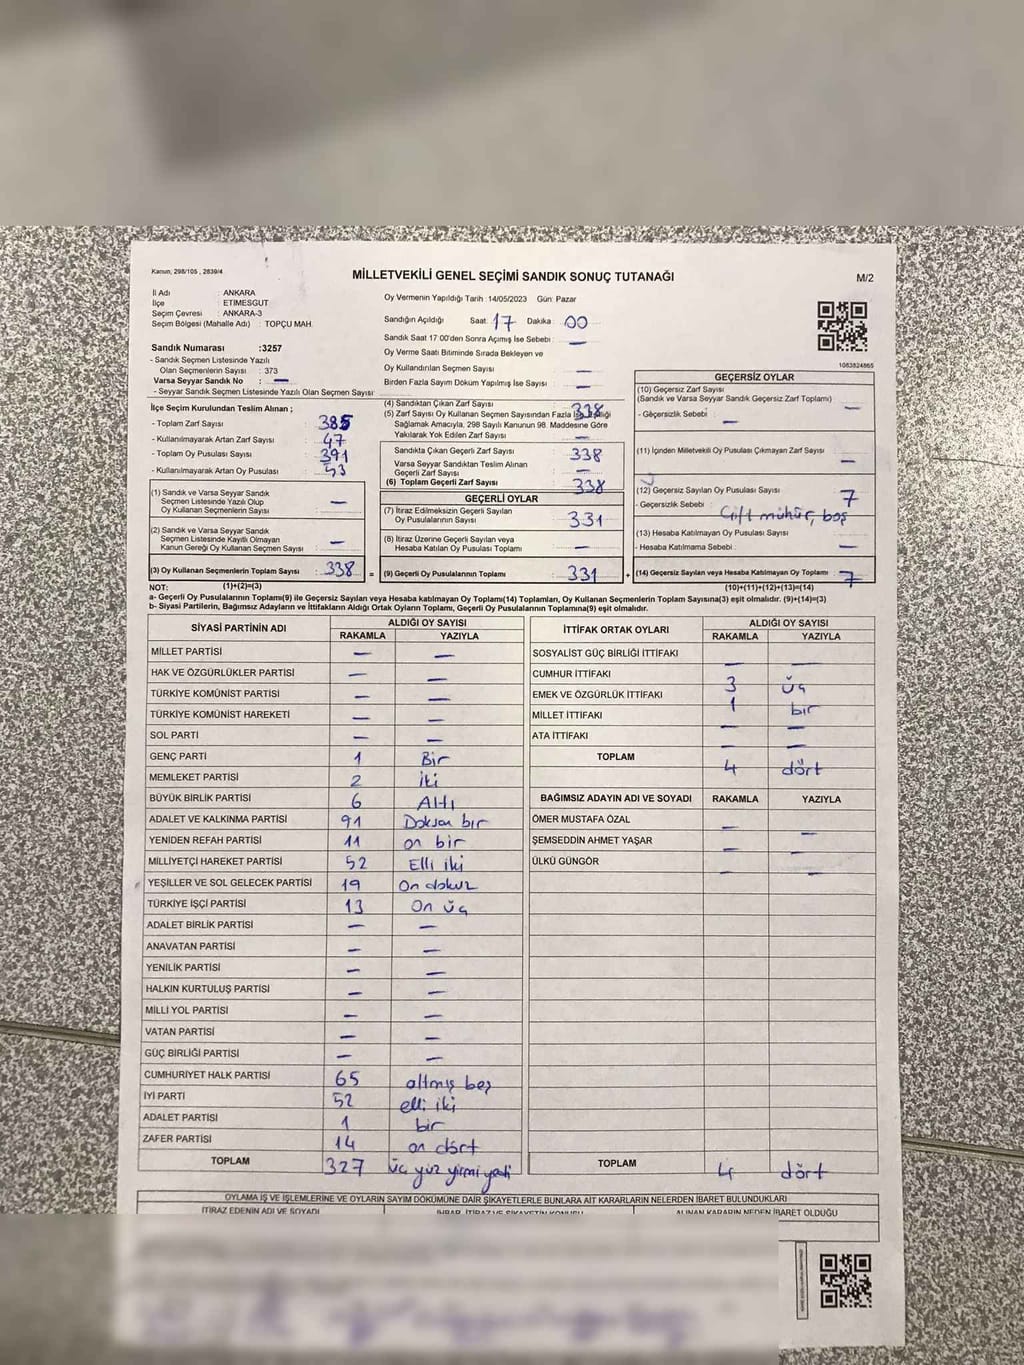 Kanun, 298/105 , 2839/4
MİLLETVEKİLİ GENEL SEÇİMİ SANDIK SONUÇ TUTANAĞI
M/2
İl Adı : ANKARA
İlçe : ETİMESGUT
Seçim Çevresi : ANKARA-3
Seçim Bölgesi (Mahalle Adı) : TOPÇU MAH.
Oy Vermenin Yapıldığı Tarih :14/05/2023 Gün: Pazar
Sandığın Açıldığı Saat: 17 Dakika : 00
Sandık Saat 17:00'den Sonra Açımış İse Sebebi : —
Oy Verme Saati Bitiminde Sırada Bekleyen ve
Oy Kullandırılan Seçmen Sayısı : —
Birden Fazla Sayım Döküm Yapılmış İse Sayısı : —
1083824865
Sandık Numarası :3257
- Sandık Seçmen Listesinde Yazılı
Olan Seçmenlerin Sayısı : 373
Varsa Seyyar Sandık No : —
- Seyyar Sandık Seçmen Listesinde Yazılı Olan Seçmen Sayısı
İlçe Seçim Kurulundan Teslim Alınan ;
- Toplam Zarf Sayısı : 385
- Kullanılmayarak Artan Zarf Sayısı : 47
- Toplam Oy Pusulası Sayısı : 391
- Kullanılmayarak Artan Oy Pusulası : 53
(1) Sandık ve Varsa Seyyar Sandık
Seçmen Listesinde Yazılı Olup
Oy Kullanan Seçmenlerin Sayısı : —
(2) Sandık ve Varsa Seyyar Sandık
Seçmen Listesinde Kayıtlı Olmayan
Kanun Gereği Oy Kullanan Seçmen Sayısı : —
(3) Oy Kullanan Seçmenlerin Toplam Sayısı : 338 =
(1)+(2)=(3)
(4) Sandıktan Çıkan Zarf Sayısı : 338
(5) Zarf Sayısı Oy Kullanan Seçmen Sayısından Fazla İse, Eşitliği
Sağlamak Amacıyla, 298 Sayılı Kanunun 98. Maddesine Göre
Yakılarak Yok Edilen Zarf Sayısı : —
Sandıkta Çıkan Geçerli Zarf Sayısı : 338
Varsa Seyyar Sandıktan Teslim Alınan
Geçerli Zarf Sayısı : —
(6) Toplam Geçerli Zarf Sayısı : 338
GEÇERLİ OYLAR
(7) İtiraz Edilmeksizin Geçerli Sayılan
Oy Pusulalarının Sayısı : 331
(8) İtiraz Üzerine Geçerli Sayılan veya
Hesaba Katılan Oy Pusulası Toplamı : —
(9) Geçerli Oy Pusulalarının Toplamı : 331 +
GEÇERSİZ OYLAR
(10) Geçersiz Zarf Sayısı
(Sandık ve Varsa Seyyar Sandık Geçersiz Zarf Toplamı) : —
- Geçersizlik Sebebi : —
(11) İçinden Milletvekili Oy Pusulası Çıkmayan Zarf Sayısı : —
(12) Geçersiz Sayılan Oy Pusulası Sayısı : 7
- Geçersizlik Sebebi : Çift mühür, boş
(13) Hesaba Katılmayan Oy Pusulası Sayısı :
- Hesaba Katılmama Sebebi : —
(14) Geçersiz Sayılan veya Hesaba Katılmayan Oy Toplamı : 7
(10)+(11)+(12)+(13)=(14)
NOT:
a- Geçerli Oy Pusulalarının Toplamı(9) ile Geçersiz Sayılan veya Hesaba katılmayan Oy Toplamı(14) Toplamları, Oy Kullanan Seçmenlerin Toplam Sayısına(3) eşit olmalıdır. (9)+(14)=(3)
b- Siyasi Partilerin, Bağımsız Adayların ve İttifakların Aldığı Ortak Oyların Toplamı, Geçerli Oy Pusulalarının Toplamına(9) eşit olmalıdır.
SİYASİ PARTİNİN ADI ALDIĞI OY SAYISI
RAKAMLA YAZIYLA
MİLLET PARTİSİ — —
HAK VE ÖZGÜRLÜKLER PARTİSİ — —
TÜRKİYE KOMÜNİST PARTİSİ — —
TÜRKİYE KOMÜNİST HAREKETİ — —
SOL PARTİ — —
GENÇ PARTİ 1 Bir
MEMLEKET PARTİSİ 2 İki
BÜYÜK BİRLİK PARTİSİ 6 Altı
ADALET VE KALKINMA PARTİSİ 91 Doksan bir
YENİDEN REFAH PARTİSİ 11 on bir
MİLLİYETÇİ HAREKET PARTİSİ 52 Elli iki
YEŞİLLER VE SOL GELECEK PARTİSİ 19 On dokuz
TÜRKİYE İŞÇİ PARTİSİ 13 On üç
ADALET BİRLİK PARTİSİ — —
ANAVATAN PARTİSİ — —
YENİLİK PARTİSİ — —
HALKIN KURTULUŞ PARTİSİ — —
MİLLİ YOL PARTİSİ — —
VATAN PARTİSİ — —
GÜÇ BİRLİĞİ PARTİSİ — —
CUMHURİYET HALK PARTİSİ 65 altmış beş
İYİ PARTİ 52 elli iki
ADALET PARTİSİ 1 bir
ZAFER PARTİSİ 14 on dört
TOPLAM 327 üç yüz yirmi yedi
İTTİFAK ORTAK OYLARI ALDIĞI OY SAYISI
RAKAMLA YAZIYLA
SOSYALİST GÜÇ BİRLİĞİ İTTİFAKI — —
CUMHUR İTTİFAKI 3 üç
EMEK VE ÖZGÜRLÜK İTTİFAKI 1 bir
MİLLET İTTİFAKI — —
ATA İTTİFAKI — —
TOPLAM 4 dört
BAĞIMSIZ ADAYIN ADI VE SOYADI RAKAMLA YAZIYLA
ÖMER MUSTAFA ÖZAL — —
ŞEMSEDDİN AHMET YAŞAR — —
ÜLKÜ GÜNGÖR — —
TOPLAM 4 dört
OYLAMA İŞ VE İŞLEMLERİNE VE OYLARIN SAYIM DÖKÜMÜNE DAİR ŞİKAYETLERLE BUNLARA AİT KARARLARIN NELERDEN İBARET BULUNDUKLARI
İTİRAZ EDENİN ADI VE SOYADI İHBAR, İTİRAZ VE ŞİKAYETİN KONUSU ALINAN KARARIN NEDEN İBARET OLDUĞU